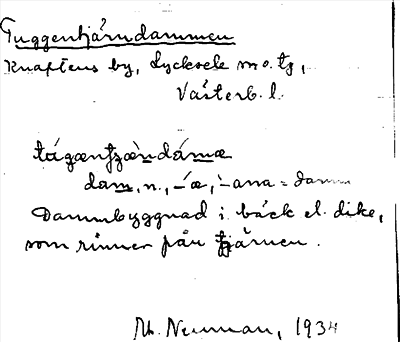 Tuggentjärndammen
Knaftens by, Lycksele m o. tg,
Västerb. l.
dam, n., -æ, -ana = damm
Dammbyggnad i bäck el. dike,
som rinner från tjärnen.
Th. Neuman, 1934